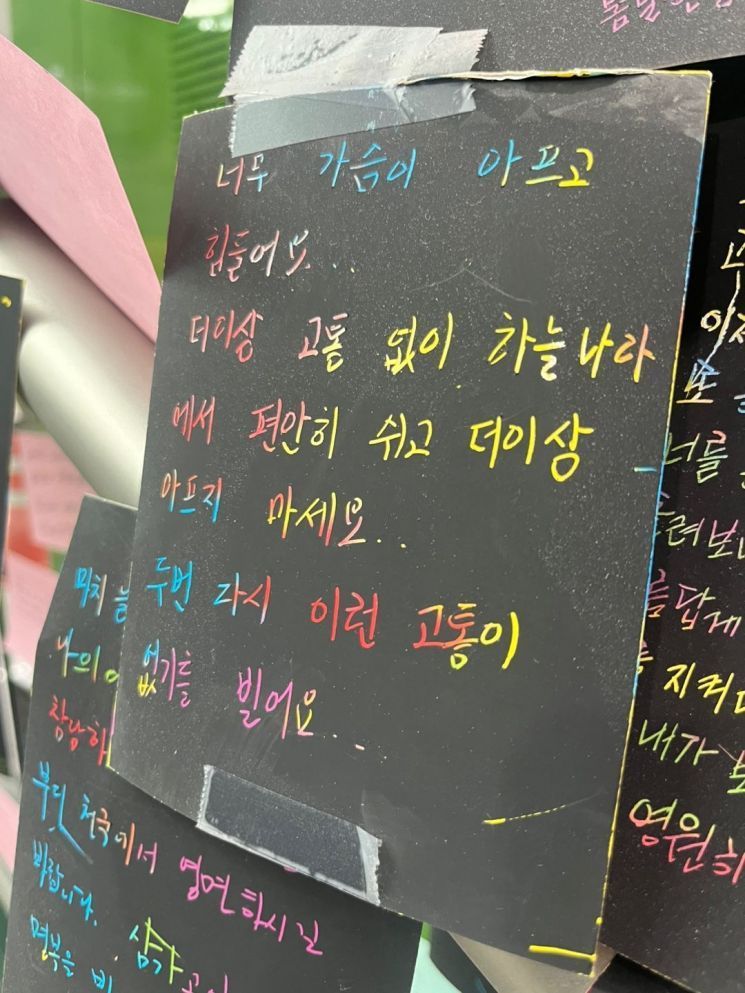 너무 가슴이 아프고
힘들어요...
더이상 고통 없이 하늘나라
에서 편안히 쉬고 더이상
아프지 마세요..
두번 다시 이런 고통이
없기를 빌어요...
나의
부딧 천국에서 영면하시길
바랍니다. 삼가
명복을 빕
또
너를
지켜
내가
영원히